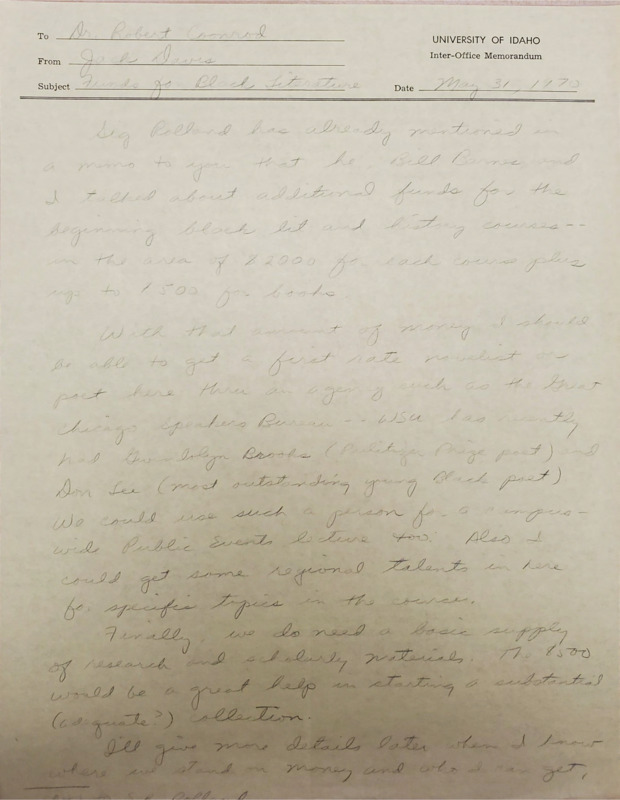 UNIVERSITY OF IDAHO
Inter-Office Memorandum
To Dr. Robert Coonrod
From Jack Davis
Subject Funds for Black Literature
Date May 31, 1970
Sig Rolland has already mentioned in
a memo to you that he, Bill Barnes and
I talked about additional funds for the
beginning black lit and history courses--
in the area of $2000 for each course plus
up to $500 for books.
With that amount of money I should
be able to get a first rate novelist or
poet here thru an agency such as the Great
Chicago Speakers Bureau -- WSU has recently
had Gwendolyn Brooks (Pulitzer Prize poet) and
Don Lee (most outstanding young Black poet)
We could use such a person for a campus-
wide Public Events lecture too. Also I
could get some regional talents in here
for specific topics in the course.
Finally, we do need a basic supply
of research and scholarly materials. $500
would be a great help in starting a substantial
(adequate?) collection.
I'll give more details later when I know
where we stand on money and who I can get.
Rolland